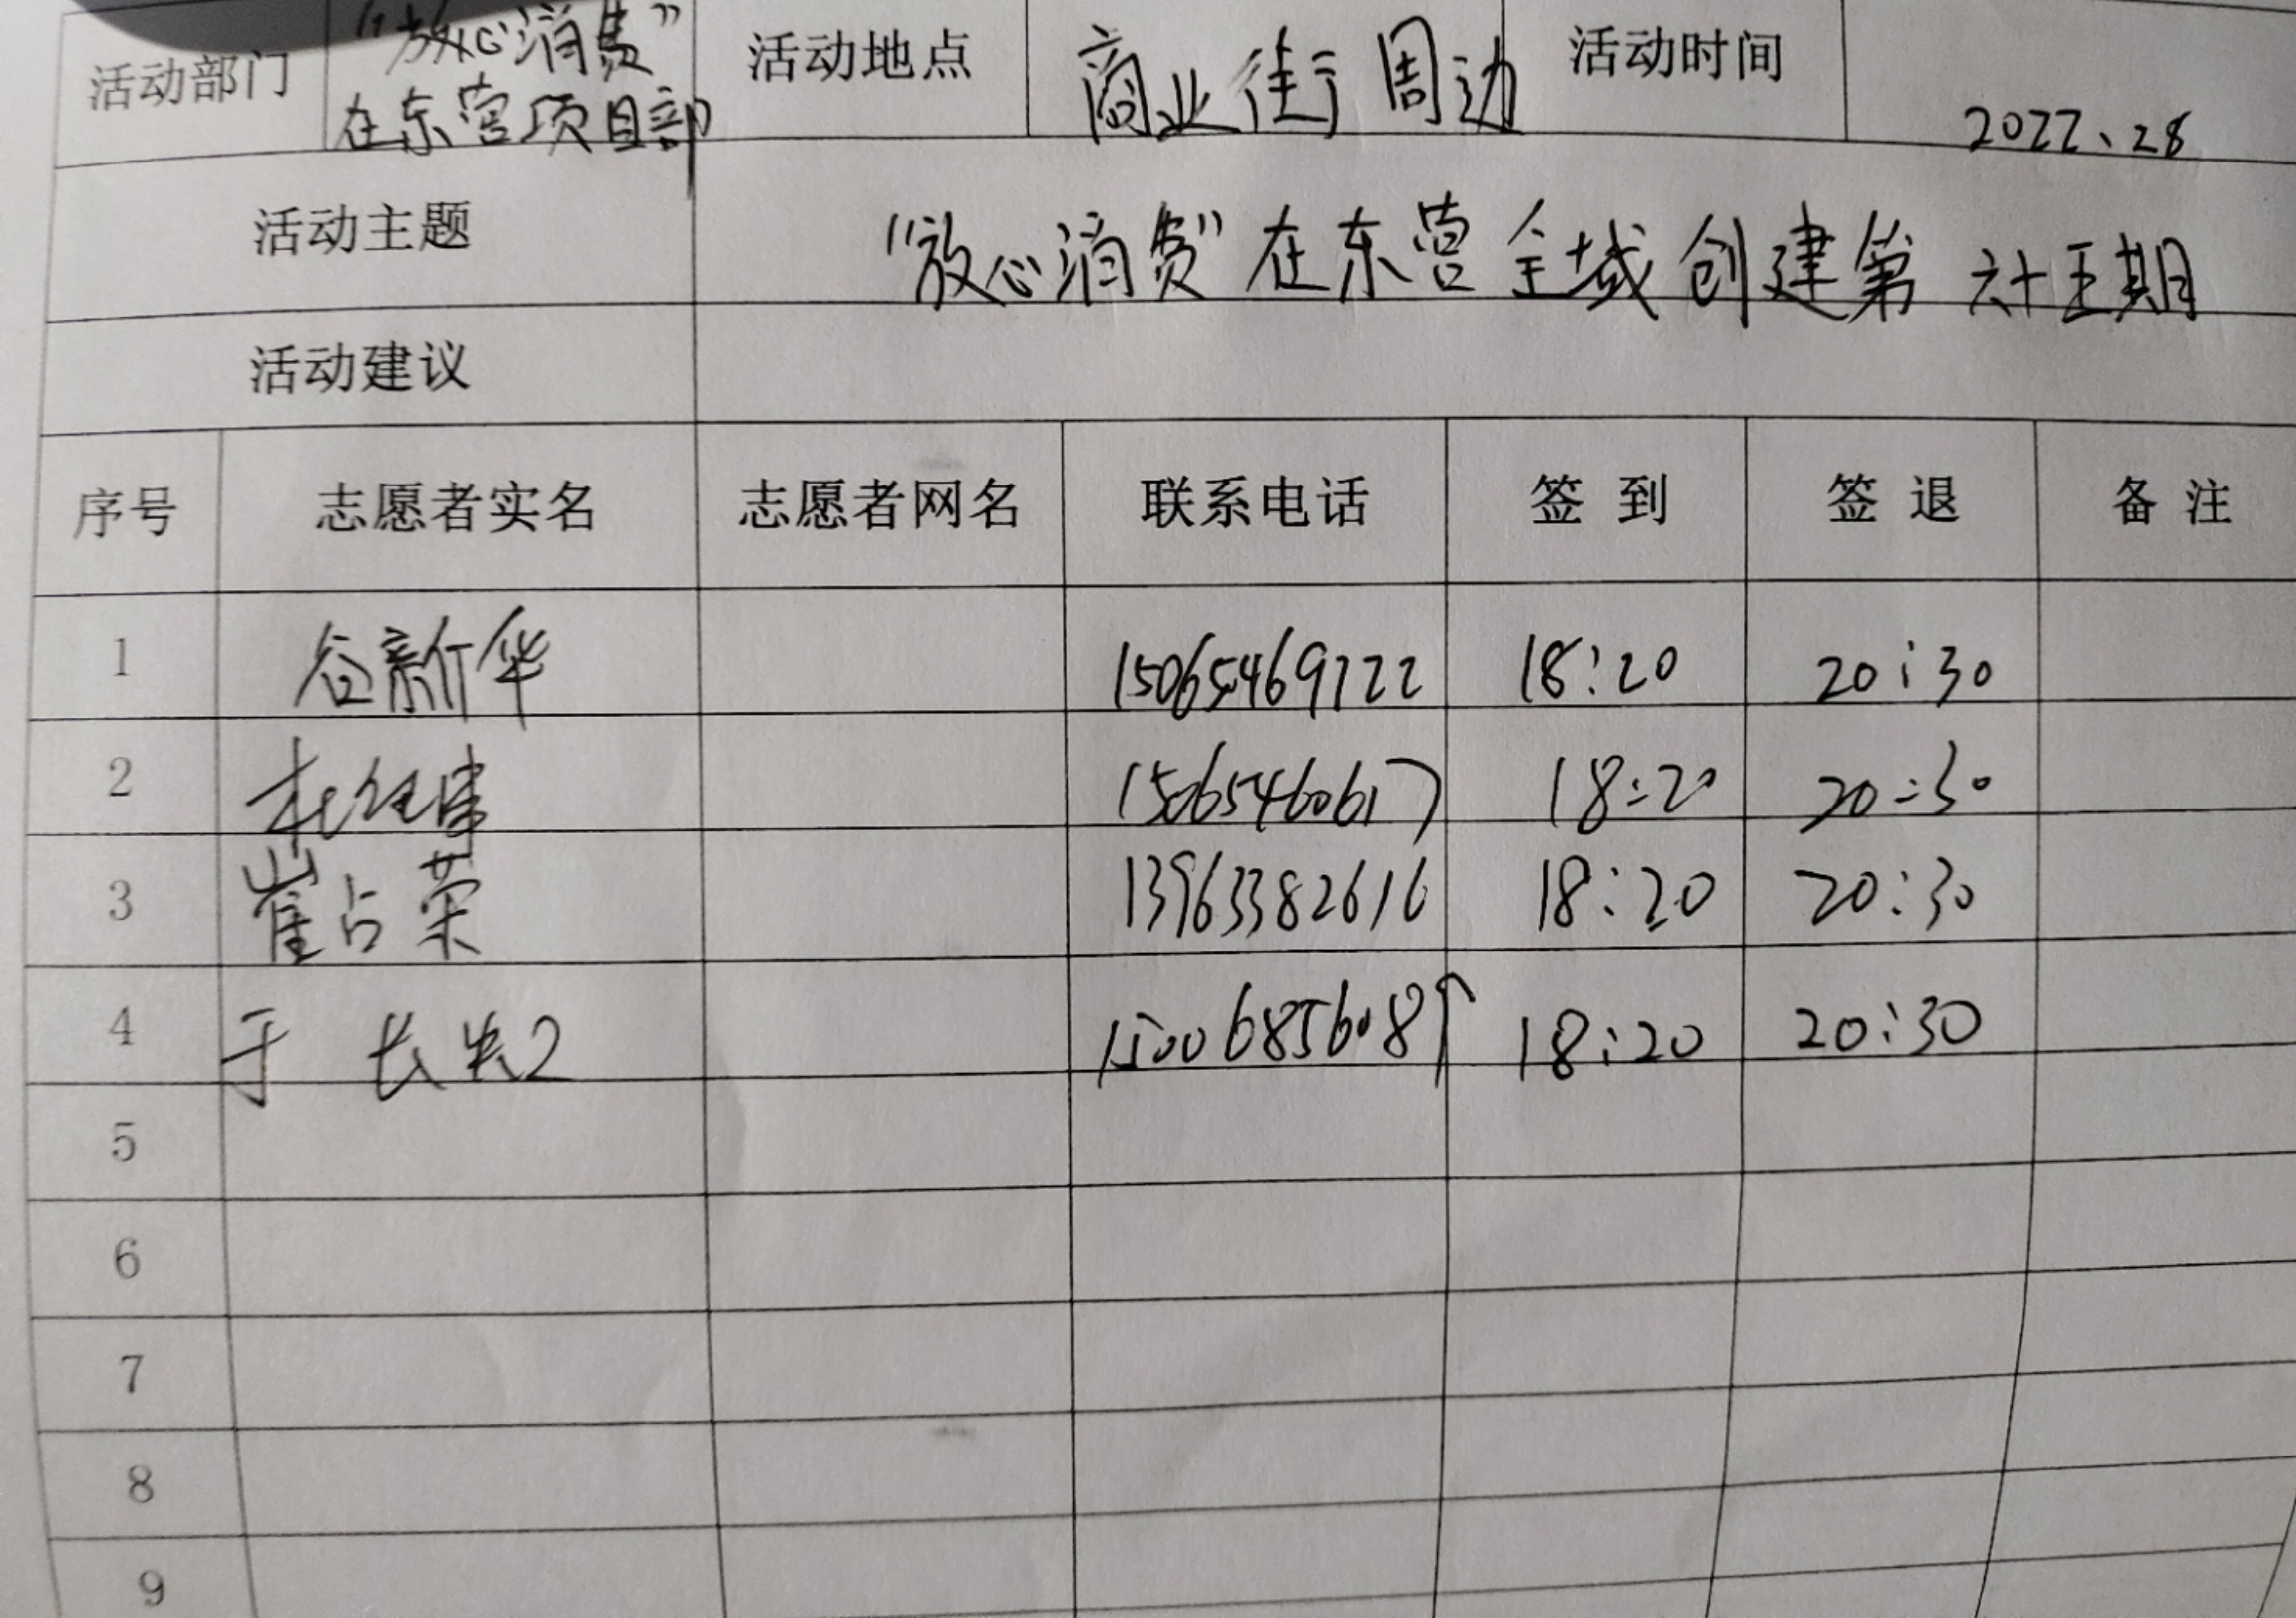 活动部门 “放心消费” 在东营项目部 活动地点 商业街周边 活动时间 2022、28
活动主题 “放心消费”在东营全域创建第六十五期
活动建议
序号 志愿者实名 志愿者网名 联系电话 签到 签退 备注
1 谷新华 15065469722 18:20 20:30
2 15065460617 18:20 20:30
3 崔占荣 13963382616 18:20 20:30
4 于长 18:20 20:30
5
6
7
8
9